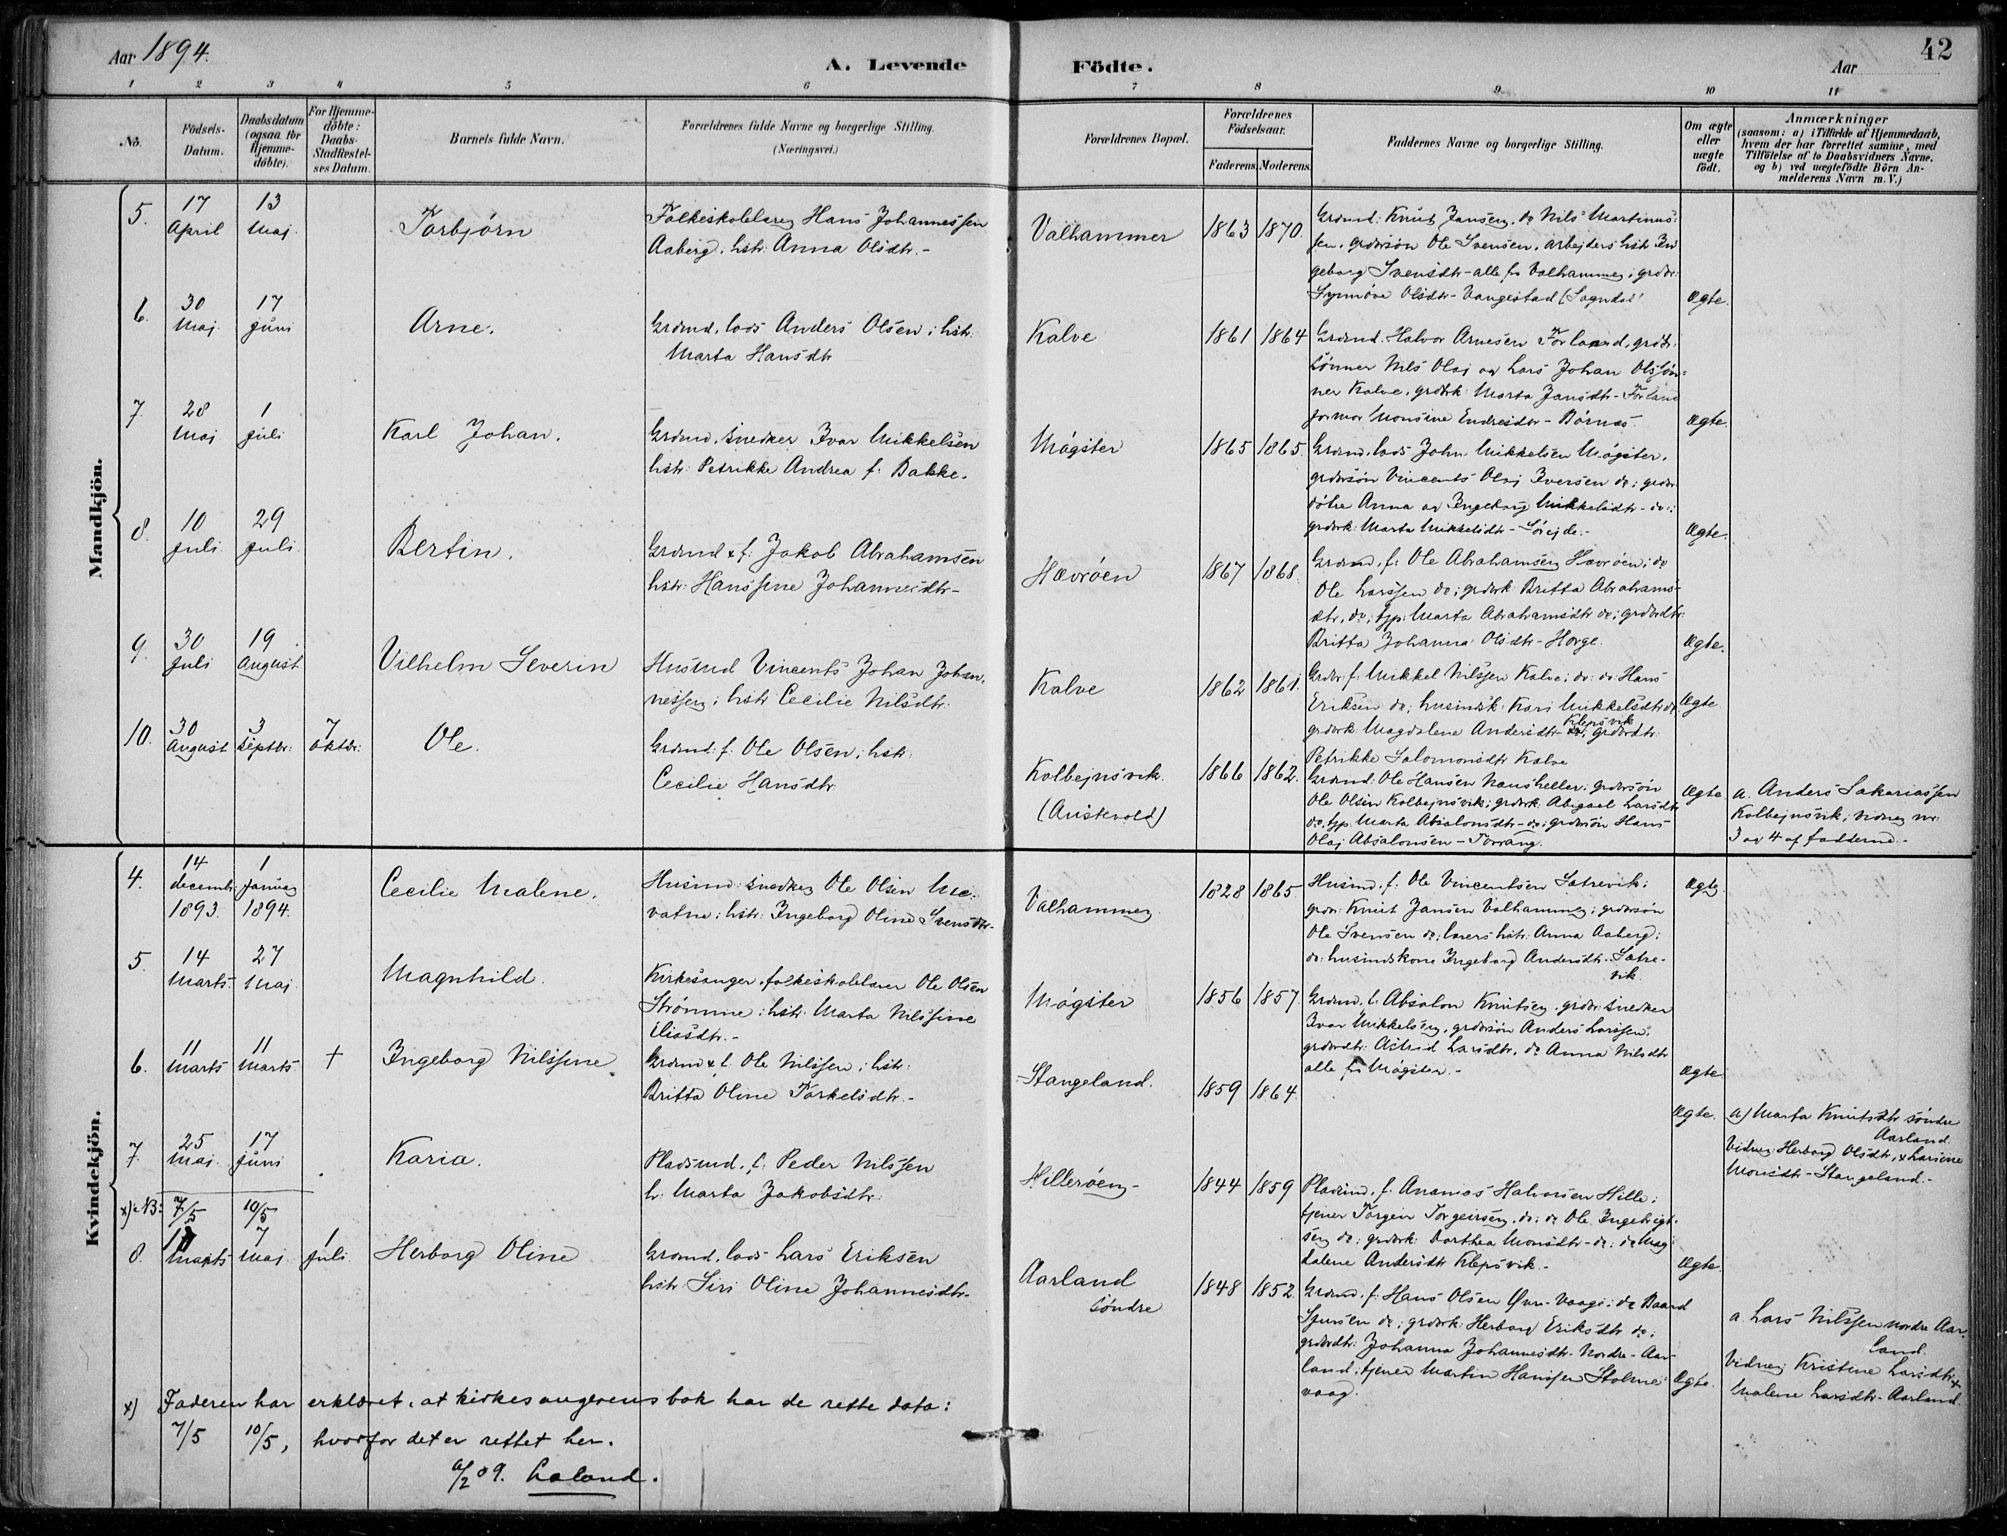 Aar 1894.
A. Levende Födte.
Aar
42
1 2 3 4 5 6 7 8 9 10 11
No.
Födsels-Datum.
Daabsdatum (ogsaa for Hjemme-döbte).
For Hjemme-döbte: Daabs-Stadfæstel-ses Datum.
Barnets fulde Navn.
Forældrenes fulde Navne og borgerlige Stilling. (Næringsvei.)
Forældrenes Bopæl.
Forældrenes Födselsaar.
Faderens. Moderens.
Faddernes Navne og borgerlige Stilling.
Om ægte eller uægte födt.
Anmærkninger
(saasom: a) i Tilfælde af Hjemmedaab, hvem der har forrettet samme, med Tilföielse af to Daabsvidners Navne, og b) ved uægtefödte Börn An-melderens Navn m. V.)
Mandkjön.
5. 17 April 13 Maj Torbjørn
Folkeskolelærer Hans Johannessen
Aaberg, hstr: Anna Olsdtr.-
Valhammer 1863 1870.
Grdmd: Knut Jansen, do Nils Martinus:
sen, grdmsøn Ole Svensen, arbejders hstr In
geborg Svensdtr - alle fr Valhammer, grdtr:
Synnøve Olsdtr - Vangestad (Sogndal)
Ægte.
6. 30 Maj 17 Juni Arne.
Grdmd, lods Anders Olsen; hstr:
Marta Hansdtr
Kalve 1861 1864
Grdmd. Halvor Arnesen Førland, grdbr.
sønner Nils Olaj og Lars Johan Olssøn=
ner Kalve, grdbrk: Marta Jansdtr - Førland
formor Monsine Endresdtr - Børnes
Ægte.
7. 28 Maj 1 Juli Karl Johan.
Grdmd, snedker Ivar Mikkelsen
hstr: Petrikke Andrea f. Bakke.
Møgster 1865 1865.
Grdmd, lods John Mikkelsen Møgster.
grdbrsøn Vincents Olaj Iversen do; grdbr
døtre Anna og Ingeborg Mikkelsdtr - do;
grdbrk: Marta Mikkelsdtr -
Ægte.
8. 10 Juli 29 Juli. Bertin.
Grdmd & f: Jakob Abrahamsen
hstr: Hanssine Johannesdtr -
Hævrøen 1867 1868.
Grdmd, f: Ole Abrahamsen Hævrøen; do
Ole Larssen do; grdbrk: Britta Abrahams-
dtr, do; tjp: Marta Abrahamsdtr do; grdbrdtr:
Britta Johanna Olsdtr - Horge.
Ægte.
9. 30 Juli 19 August Vilhelm Severin
Husmd Vincents Johan Johan.
nessen; hstr Cecilie Nilsdtr.
Kalve 1862 1861.
Grdbr. f: Mikkel Nilssen Kalve; do: do Hans
Eriksen do; husmdsk: Kari Mikkelsdtr do
grdbrk: Magdalene Andersdtr - Klepsvik, grdbrdtr:
Petrikke Salomonsdtr Kalve
Ægte
10. 30 August 3 Septbr: 7 Oktbr: Ole.
Grdmd: f: Ole Olsen, hstr:
Cecilie Hansdtr
Kolbejnsvik. (Austevold) 1866 1862.
Grdmd: Ole Hansen Naustheller, grdbrsøn
Ole Olsen Kolbejnsvik; grdbrk: Abigael Larsdtr
do, tjp: Marta Absalonsdtr - do; grdbrsøn Hans
Olaj Absalonsen - Torrang.
Ægte
a. Anders Sakariassen
Kolbejnsvik; vidner nr:
3 og 4 af fadderne.-
Kvindekjön.
4. 14 decembr 1893. 1 Januar 1894. Cecilie Malene.
Husmd: snedker Ole Olsen Me.
vatne; hstr: Ingeborg Oline Svensdtr-
Valhammer 1828 1865
Husmd. f: Ole Vincentsen Satrevik;
grdbr: Knut Jansen Valhammer; grdbrsøn
Ole Svensen do; lærers hstr: Anna Aaberg;
do: husmdskone Ingeborg Andersdtr - Satre-
vik
Ægte
5. 14 Marts 27 Maj Magnhild.
Kirkesanger, folkeskolelærer Ole Olsen
Strømme; hstr: Marta Nilssine
Elisdtr.-
Møgster 1856 1857.
Grdmd, l. Absalon Knutsen, grdbr. snedker
Ivar Mikkelsen, grdbrsøn Anders Larssen,
grdbrdtr: Astrid Larsdtr, do Anna Nilsdtr
alle fr Møgster.-
Ægte
6. 11 Marts 11 Marts † Ingeborg Nilssine.
Grdmd & l. Ole Nilssen; hstr:
Britta Oline Torkelsdtr.-
Stangeland. 1859 1864.
Ægte.
a) Marta Knutsdtr søndre
Aarland.
Vidner: Herborg Olsdtr, & Larsine
Monsdtr - Stangeland.-
7. 25 Maj. 17 Juni Karia.
Pladsmd, f. Peder Nilssen
h: Marta Jakobsdtr:
Hillerøen - 1844 1859
Pladsmd, f. Ananias Halvorsen Hille;
tjener Torgeir Torgeirsen, do; do Ole Ingebrigt-
sen do; grdbrk: Dorthea Monsdtr - do; do Mag
dalene Andersdtr Klepsvik.-
Ægte.
x) NB: 7/5 10/5
8. Marts 7 Maj 1 Juli Herborg Oline
Grdmd, lods Lars Eriksen
hstr: Siri Oline Johannesdtr.
Aarland søndre 1848 1852.
Grdmd, f: Hans Olsen Øvre-Vaage; do Baard
Sjursen do; grdbrk: Herborg Eriksdtr do;
grdbrdtr: Johanna Johannesdtr - Nordre-Aar-
land; tjener Martin Hanssen Stolme
vaag.
Ægte.
a Lars Nilssen nordre Aar.
land.
Vidner: Kristine Larsdtr &
Malene Larsdtr - Aarland.
x) Faderen har erklæret, at kirkesangerens bok har de rette data:
7/5 10/5, hvorfor det er rettet her.
/2 09. Laland.